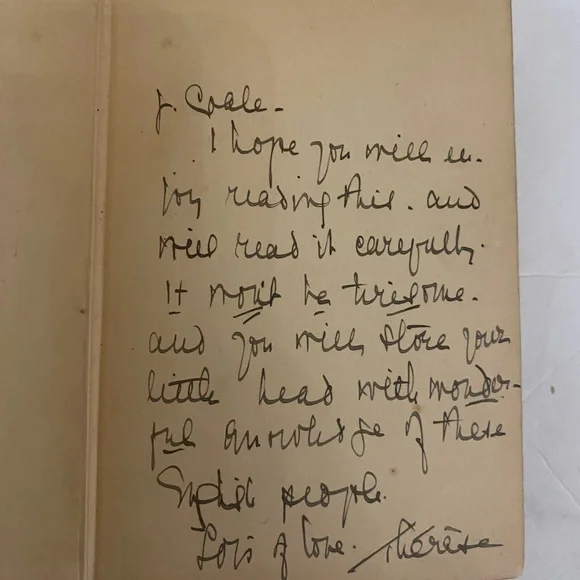 J. Coale -
I hope you will en-
joy reading this. and
will read it carefully.
It won't be tiresome.
and you will store your
little head with wonder-
ful knowledge of these
English people.
Lots of love. Thérèse